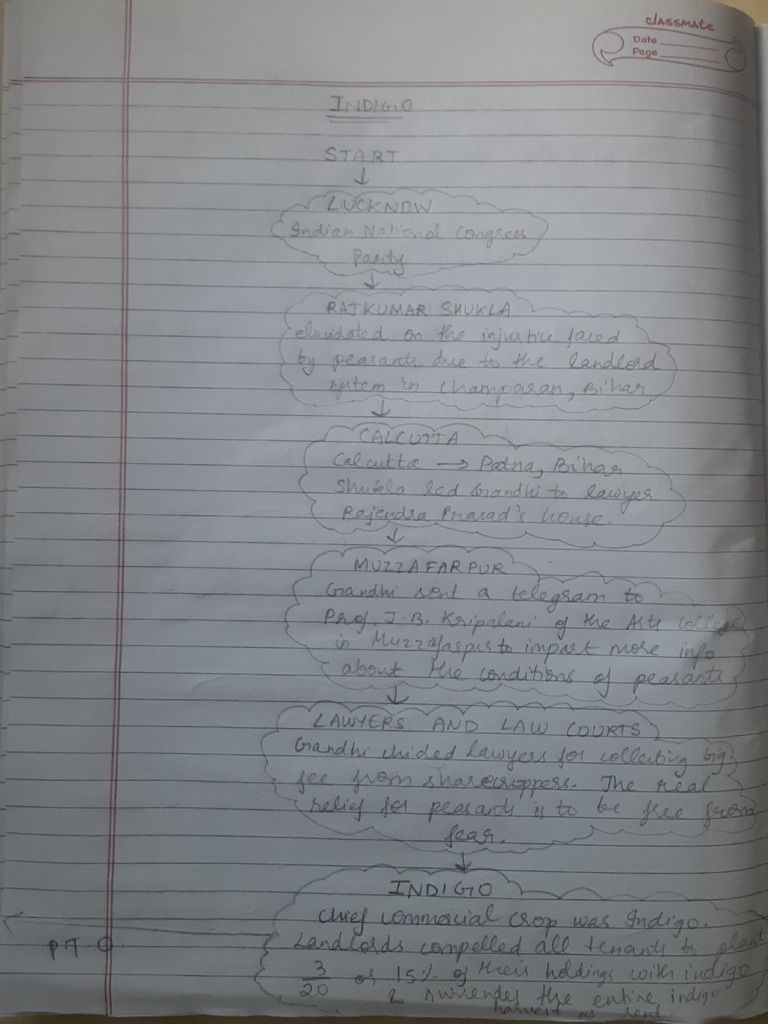 classmate
Date
Page
INDIGO
START
LUCKNOW
Indian National Congress
Party
RAJKUMAR SHUKLA
elucidated on the injustice faced
by peasants due to the landlord
system in Champaran, Bihar
CALCUTTA
Calcutta → Patna, Bihar
Shukla led Gandhi to lawyer
Rajendra Prasad's house.
MUZZAFARPUR
Gandhi sent a telegram to
Prof. J.B. Kripalani of the Arts college
in Muzzafarpur to impart more info
about the conditions of peasants
LAWYERS AND LAW COURTS
Gandhi chided lawyers for collecting big
fee from sharecroppers. The real
relief for peasants is to be free from
fear.
INDIGO
Chief commercial crop was Indigo.
Landlords compelled all tenants to plant
3/20 or 15% of their holdings with indigo
& surrender the entire indigo
harvest as rent.
P T O